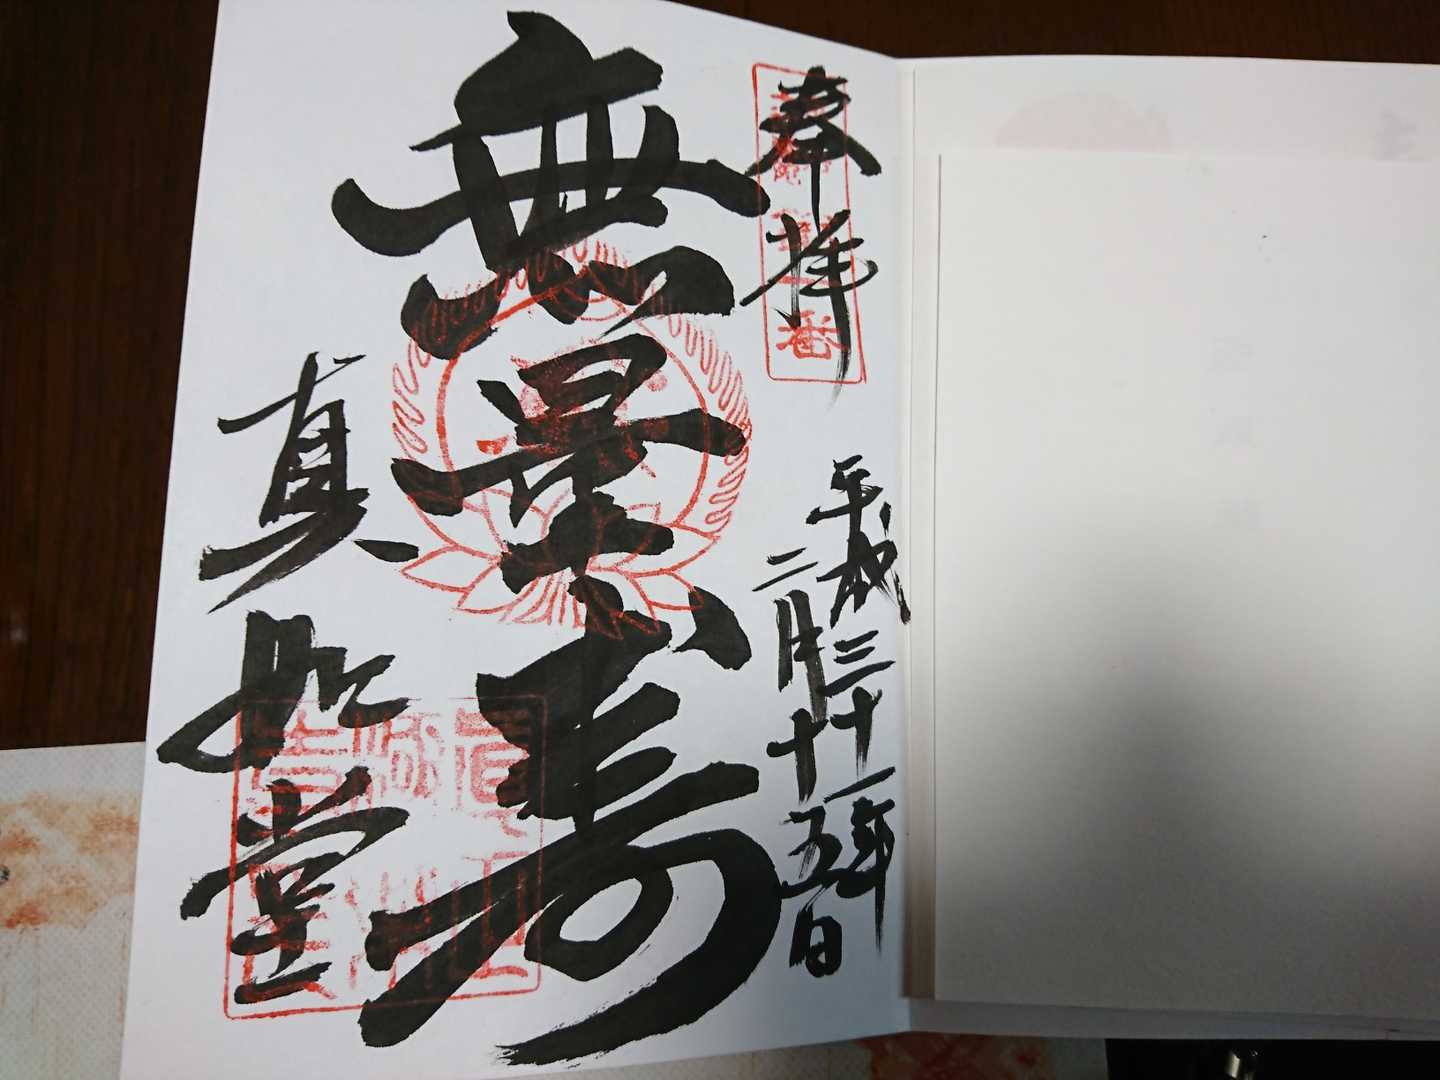 奉拝
平成三十一年
二月十五日
無量寿
真如堂